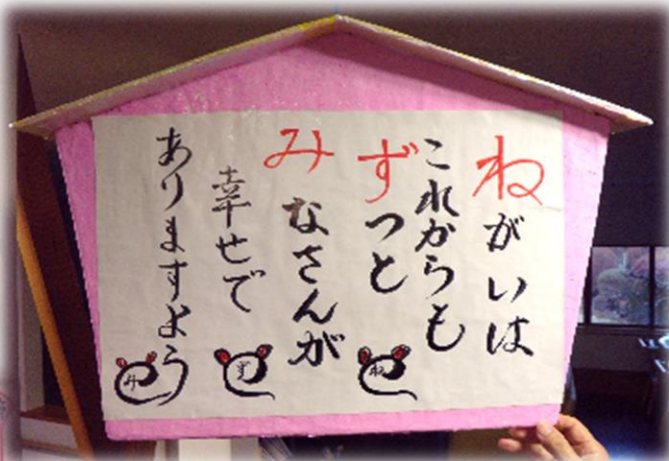 ねがいは
これからも
ずっと
みなさんが
幸せで
ありますよう
ね
ず
み